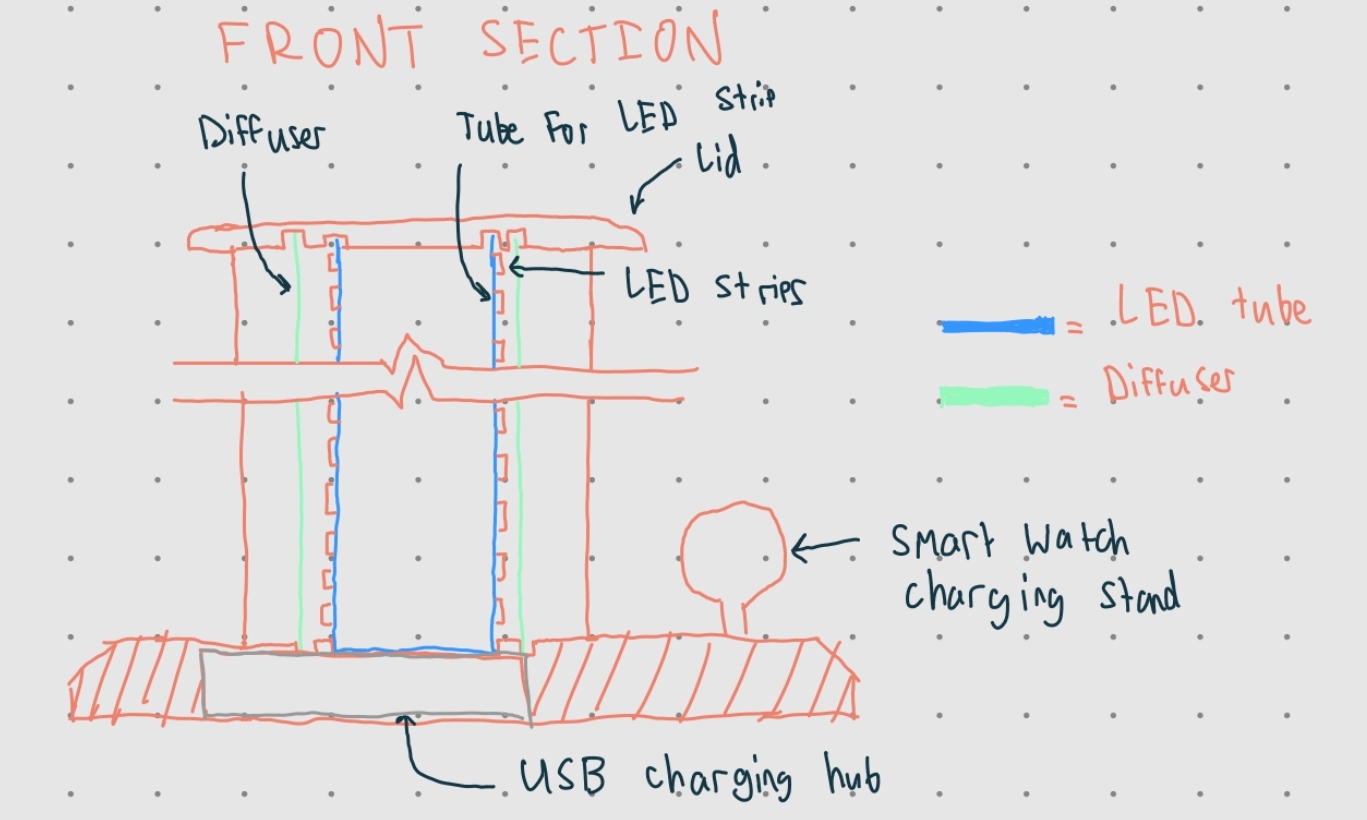 FRONT SECTION
Diffuser
Tube For LED Strip
Lid
LED strips
= LED tube
= Diffuser
Smart Watch
charging stand
USB charging hub